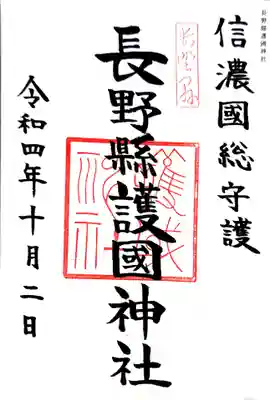 長野縣護國神社
信濃國総守護
長野縣護國神社
令和四年十月二日